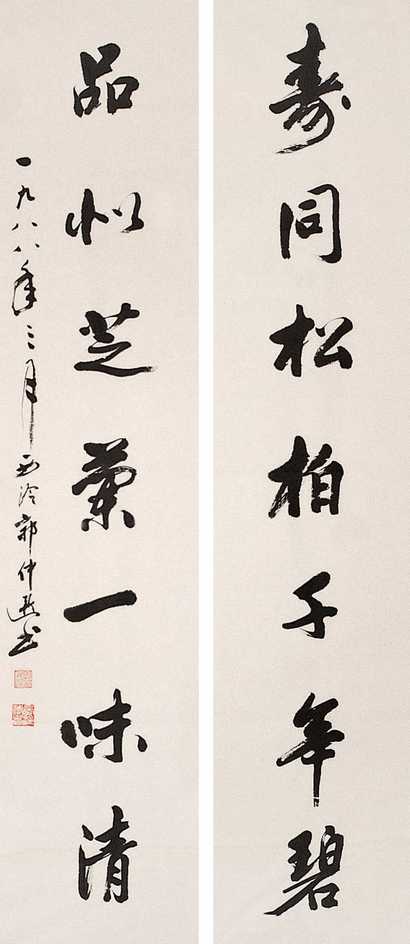 寿同松柏千年碧
品似芝兰一味清
一九八八年三月西泠郭仲选书